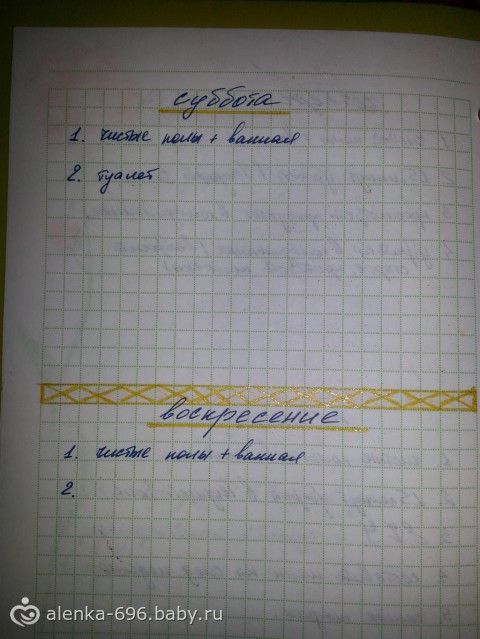 суббота
1. чистые полы + ванная
2. туалет
воскресение
1. чистые полы + ванная
2.
alenka-696.baby.ru